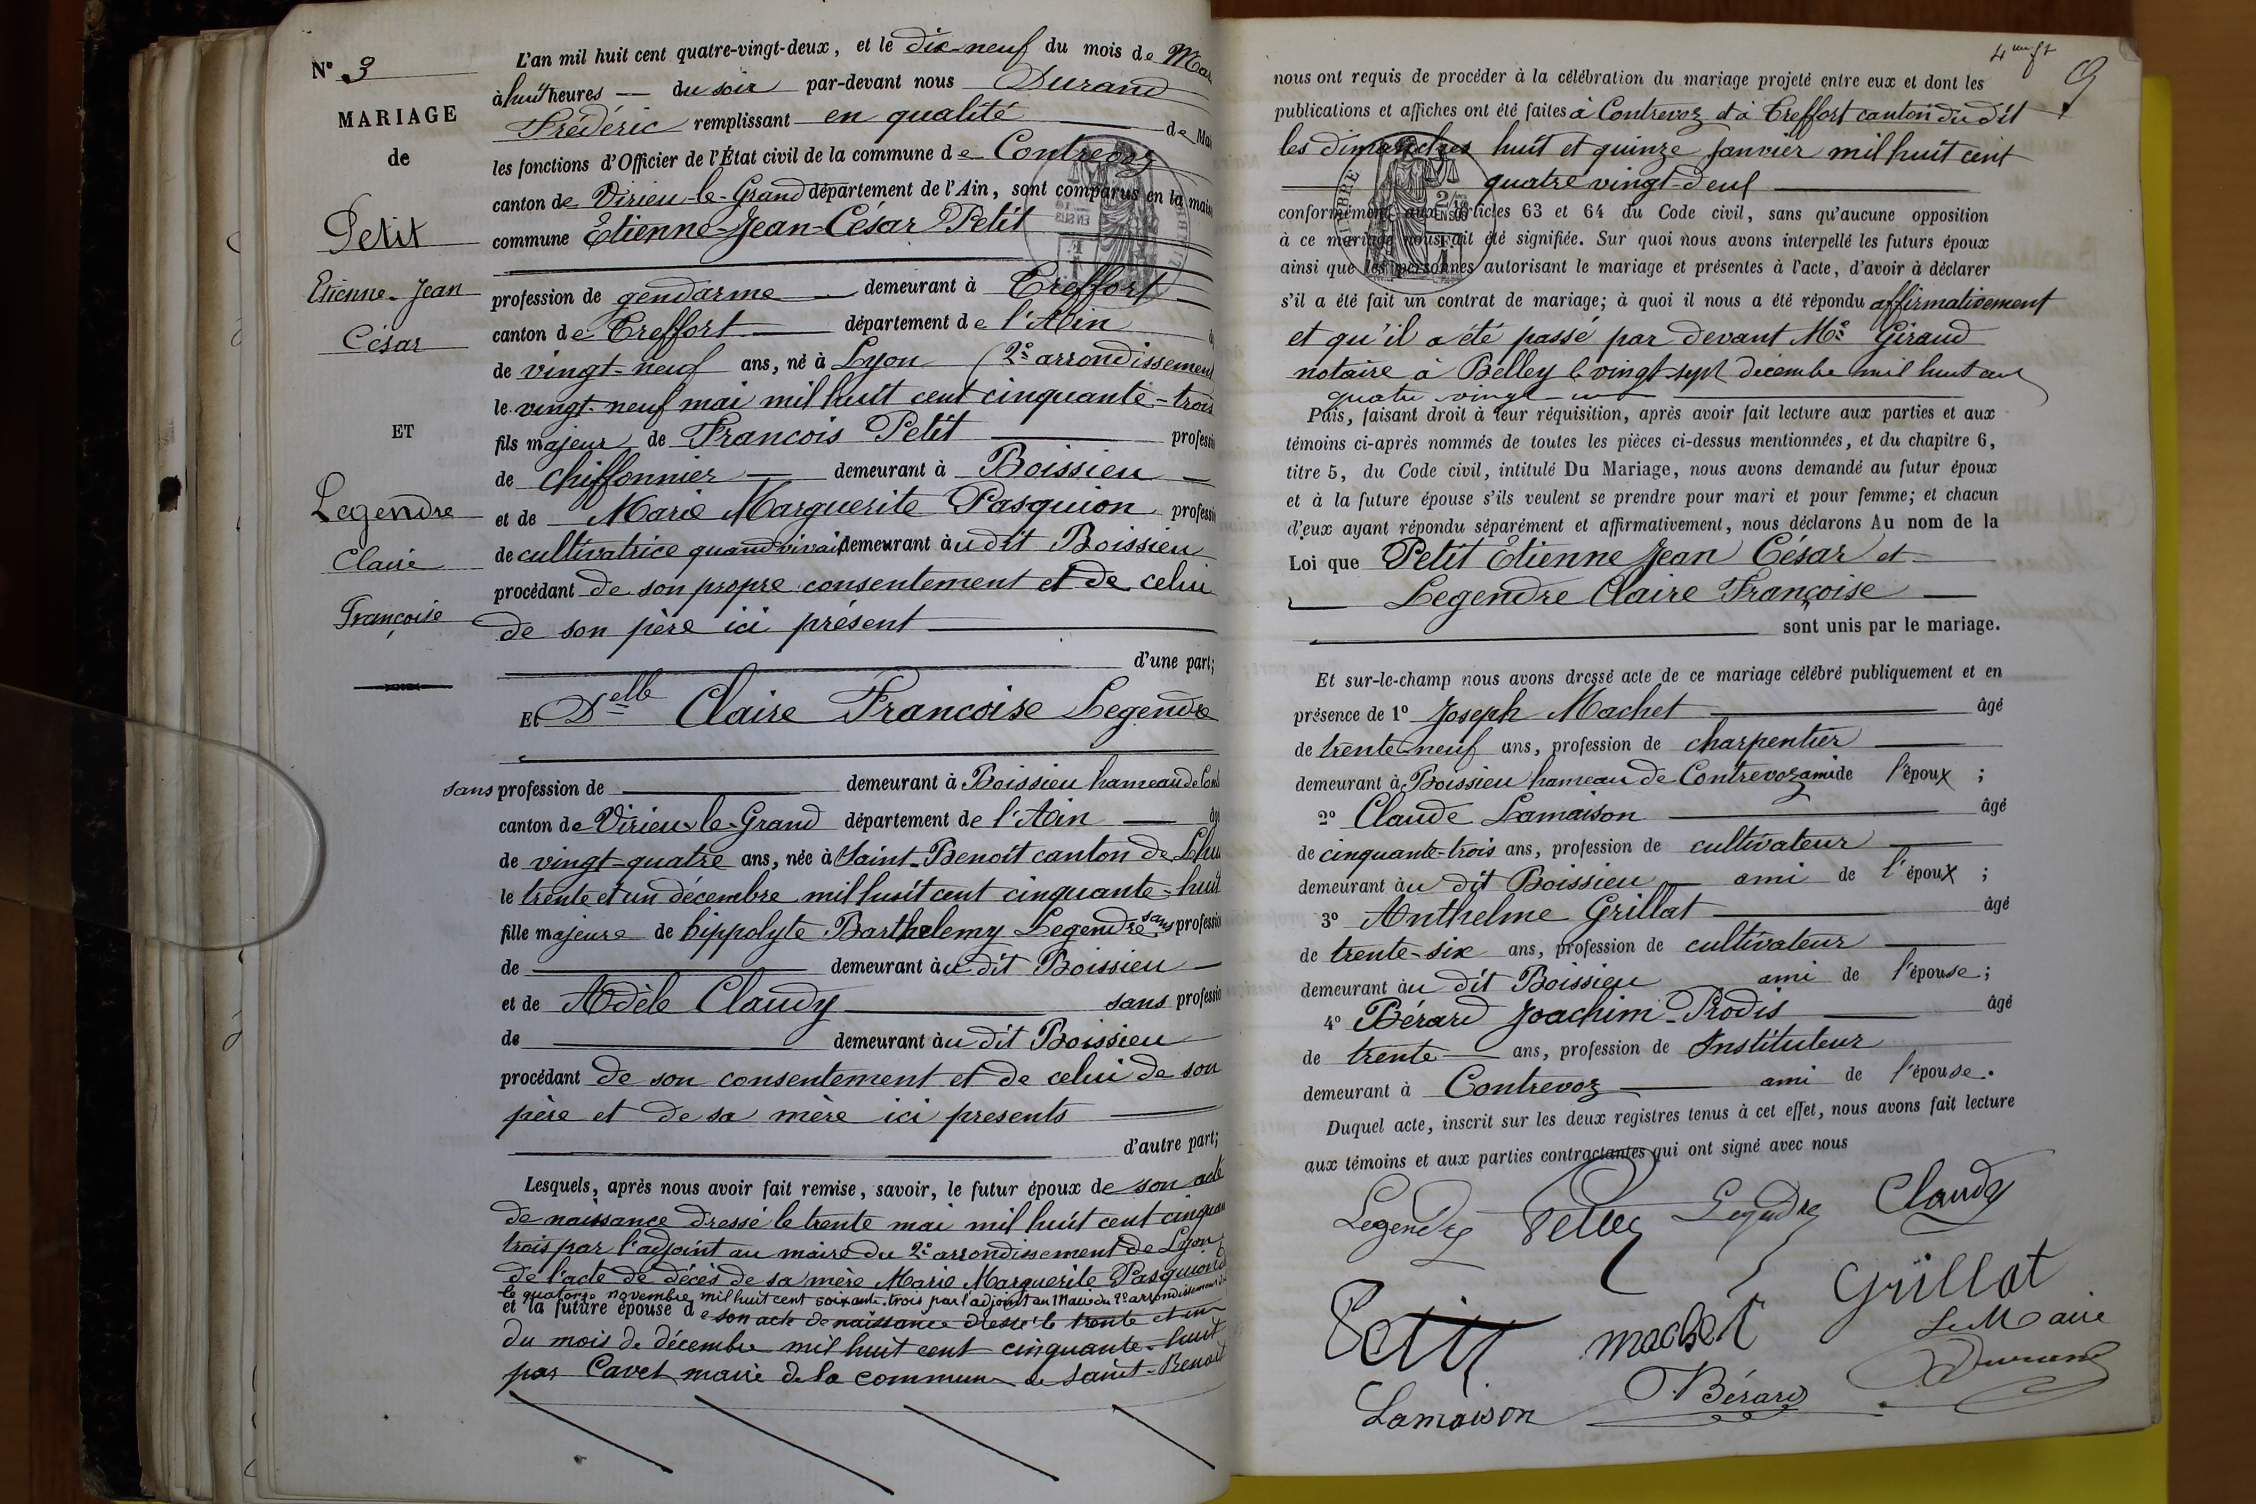 N° 3
MARIAGE
de
Petit
Etienne-Jean
César
ET
Legendre
Claire
Françoise
L'an mil huit cent quatre-vingt-deux, et le dix-neuf du mois de Mar
à huit heures — du soir par-devant nous Durand
Frédéric remplissant en qualité de Mai
les fonctions d'Officier de l'État civil de la commune de Contrevoz
canton de Virieu-le-Grand département de l'Ain, sont comparus en la mais
commune Etienne-Jean-César Petit
profession de gendarme demeurant à Treffort
canton de Treffort département de l'Ain
de vingt-neuf ans, né à Lyon (2e arrondissement
le vingt-neuf mai mil huit cent cinquante-trois
fils majeur de Francois Petit professi
de chiffonnier demeurant à Boissieu
et de Marie Marguerite Pasquion professi
de cultivatrice quand vivait demeurant àu dit Boissieu
procédant de son propre consentement et de celui
de son père ici présent
d'une part;
Et Delle Claire Francoise Legendre
sans profession de demeurant à Boissieu hameau de Cont
canton de Virieu-le-Grand département de l'Ain âgé
de vingt-quatre ans, née à Saint-Benoit canton de Lhui
le trente et un décembre mil huit cent cinquante-huit
fille majeure de hippolyte Barthelemy Legendre sans professio
de demeurant àu dit Boissieu
et de Adèle Claudy sans professio
de demeurant àu dit Boissieu
procédant de son consentement et de celui de son
père et de sa mère ici presents
d'autre part;
Lesquels, après nous avoir fait remise, savoir, le futur époux de son acte
de naissance dressé le trente mai mil huit cent cinquan
trois par l'adjoint au maire du 2e arrondissement de Lyon
de l'acte de décès de sa mère Marie Marguerite Pasquion
le quatorze novembre mil huit cent soixante-trois par l'adjoint au Maire du 2e arrondissement
et la future épouse de son acte de naissance dressé le trente et un
du mois de décembre mil huit cent cinquante-huit
par Cavet maire de la commune de Saint-Benoit
9
nous ont requis de procéder à la célébration du mariage projeté entre eux et dont les
publications et affiches ont été faites à Contrevoz et à Treffort canton du dit
les dimanches huit et quinze janvier mil huit cent
quatre vingt-deux
conformément aux articles 63 et 64 du Code civil, sans qu'aucune opposition
à ce mariage nous ait été signifiée. Sur quoi nous avons interpellé les futurs époux
ainsi que les personnes autorisant le mariage et présentes à l'acte, d'avoir à déclarer
s'il a été fait un contrat de mariage; à quoi il nous a été répondu affirmativement
et qu'il a été passé par devant Me Giraud
notaire à Belley le vingt-sept décembre mil huit cent
quatre vingt-un
Puis, faisant droit à leur réquisition, après avoir fait lecture aux parties et aux
témoins ci-après nommés de toutes les pièces ci-dessus mentionnées, et du chapitre 6,
titre 5, du Code civil, intitulé Du Mariage, nous avons demandé au futur époux
et à la future épouse s'ils veulent se prendre pour mari et pour femme; et chacun
d'eux ayant répondu séparément et affirmativement, nous déclarons Au nom de la
Loi que Petit Etienne Jean César et
Legendre Claire Françoise
sont unis par le mariage.
Et sur-le-champ nous avons dressé acte de ce mariage célébré publiquement et en
présence de 1° Joseph Machet âgé
de trente-neuf ans, profession de charpentier
demeurant à Boissieu hameau de Contrevoz ami de l'époux ;
2° Claude Lamaison âgé
de cinquante-trois ans, profession de cultivateur
demeurant àu dit Boissieu ami de l'époux ;
3° Anthelme Grillat âgé
de trente-six ans, profession de cultivateur
demeurant àu dit Boissieu ami de l'épouse ;
4° Bérard Joachim-Prodis âgé
de trente ans, profession de Instituteur
demeurant à Contrevoz ami de l'épouse.
Duquel acte, inscrit sur les deux registres tenus à cet effet, nous avons fait lecture
aux témoins et aux parties contractantes qui ont signé avec nous
Legendre Legendre Claudy
Petit machet Grillat
Le Maire
Durand
Lamaison Bérard